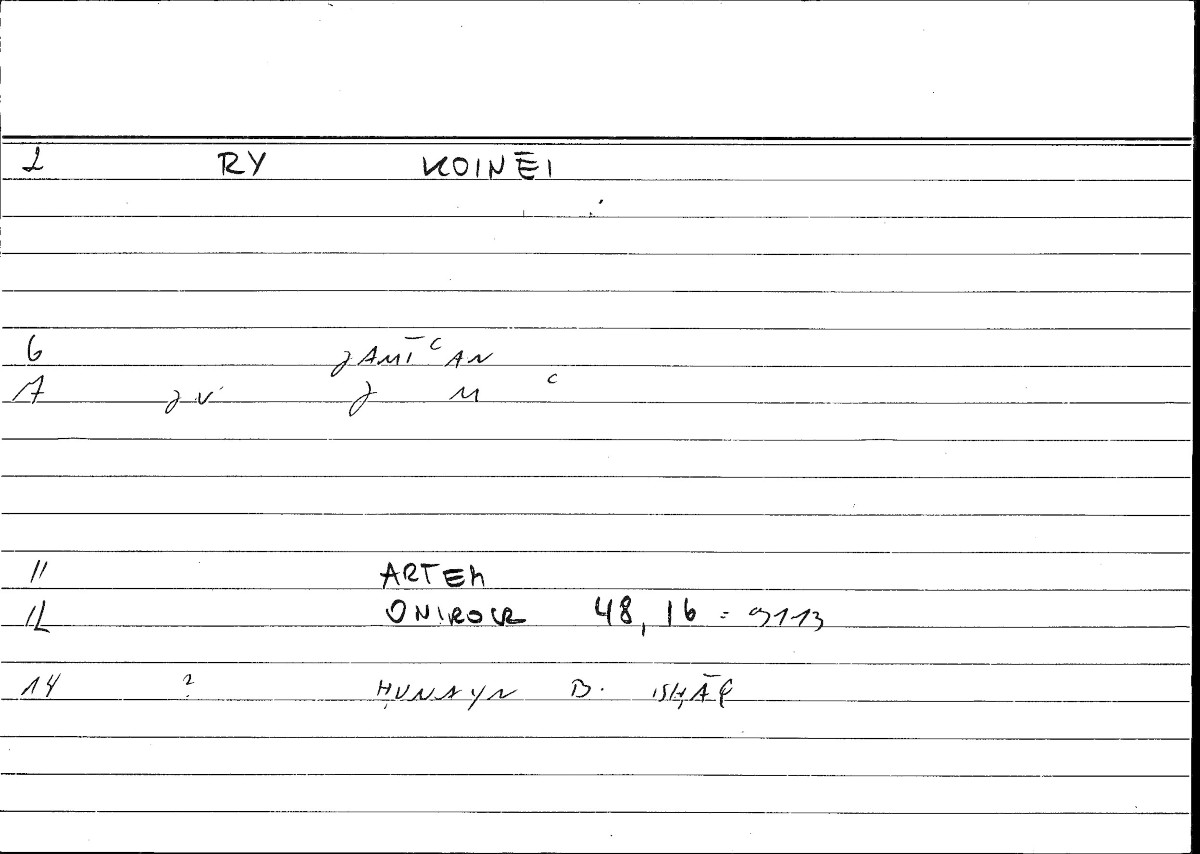 2 RY KOINĒI
6 ǧAMĪʿAN
7 ǧV ǧ M ʿ
11 ARTEM
12 ONIROCR 48, 16 = 9113
14 ? ḤUNAYN B. ISḤĀQ